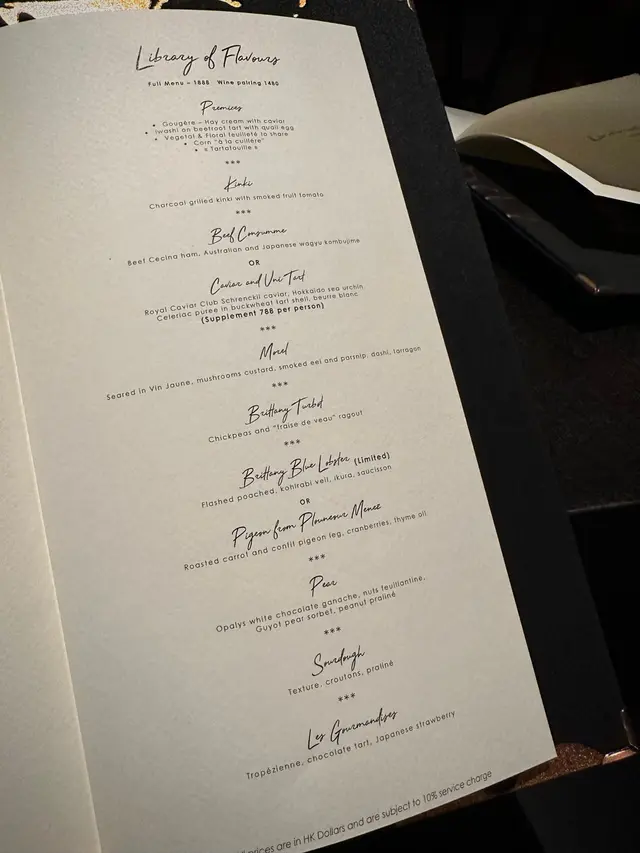 Library of Flavours
Full Menu – 1888 Wine pairing 1480
Premices
• Gougère – Hay cream with caviar
• Iwashi on beetroot tart with quail egg
• Vegetal & Floral feuilleté to share
• Corn "à la cuillère"
• « Tartatouille »
***
Kinki
Charcoal grilled kinki with smoked fruit tomato
***
Beef Consumme
Beef Cecina ham, Australian and Japanese wagyu kombujime
OR
Caviar and Uni Tart
Royal Caviar Club Schrenckii caviar, Hokkaido sea urchin
Celeriac purée in buckwheat tart shell, beurre blanc
(Supplement 788 per person)
***
Morel
Seared in Vin Jaune, mushrooms custard, smoked eel and parsnip, dashi, tarragon
***
Brittany Turbot
Chickpeas and "fraise de veau" ragout
***
Brittany Blue Lobster (Limited)
Flashed poached, kohlrabi veil, ikura, saucisson
OR
Pigeon from Plouneour Menez
Roasted carrot and confit pigeon leg, cranberries, thyme oil
***
Pear
Opalys white chocolate ganache, nuts feuillantine,
Guyot pear sorbet, peanut praliné
***
Sourdough
Texture, croutons, praliné
***
Les Gourmandises
Tropézienne, chocolate tart, Japanese strawberry
prices are in HK Dollars and are subject to 10% service charge